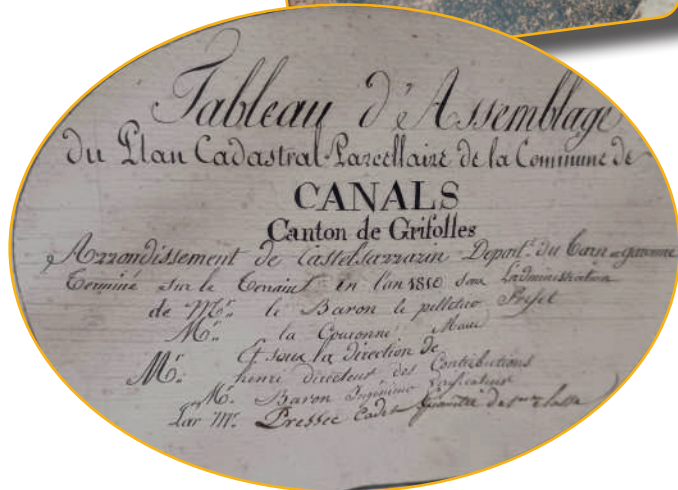 Tableau d'Assemblage
du Plan Cadastral Parcellaire de la Commune de
CANALS
Canton de Grifolles
Arrondissement de Castelsarrazin Depart.t du Tarn et garonne
Terminé sur le Terrain en l'an 1810 sous L'administration
de M.r le Baron le pelletier Préfet
M.r la Couronne Maire
Et sous la direction de
M.r henri directeur des Contributions
M.r Baron Ingénieur Vérificateur
Par M.r Pressec Cadet Géomètre de classe